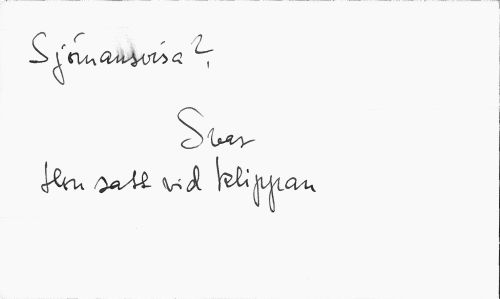 Sjömansvisa?
Svar
Hon satt vid klippan